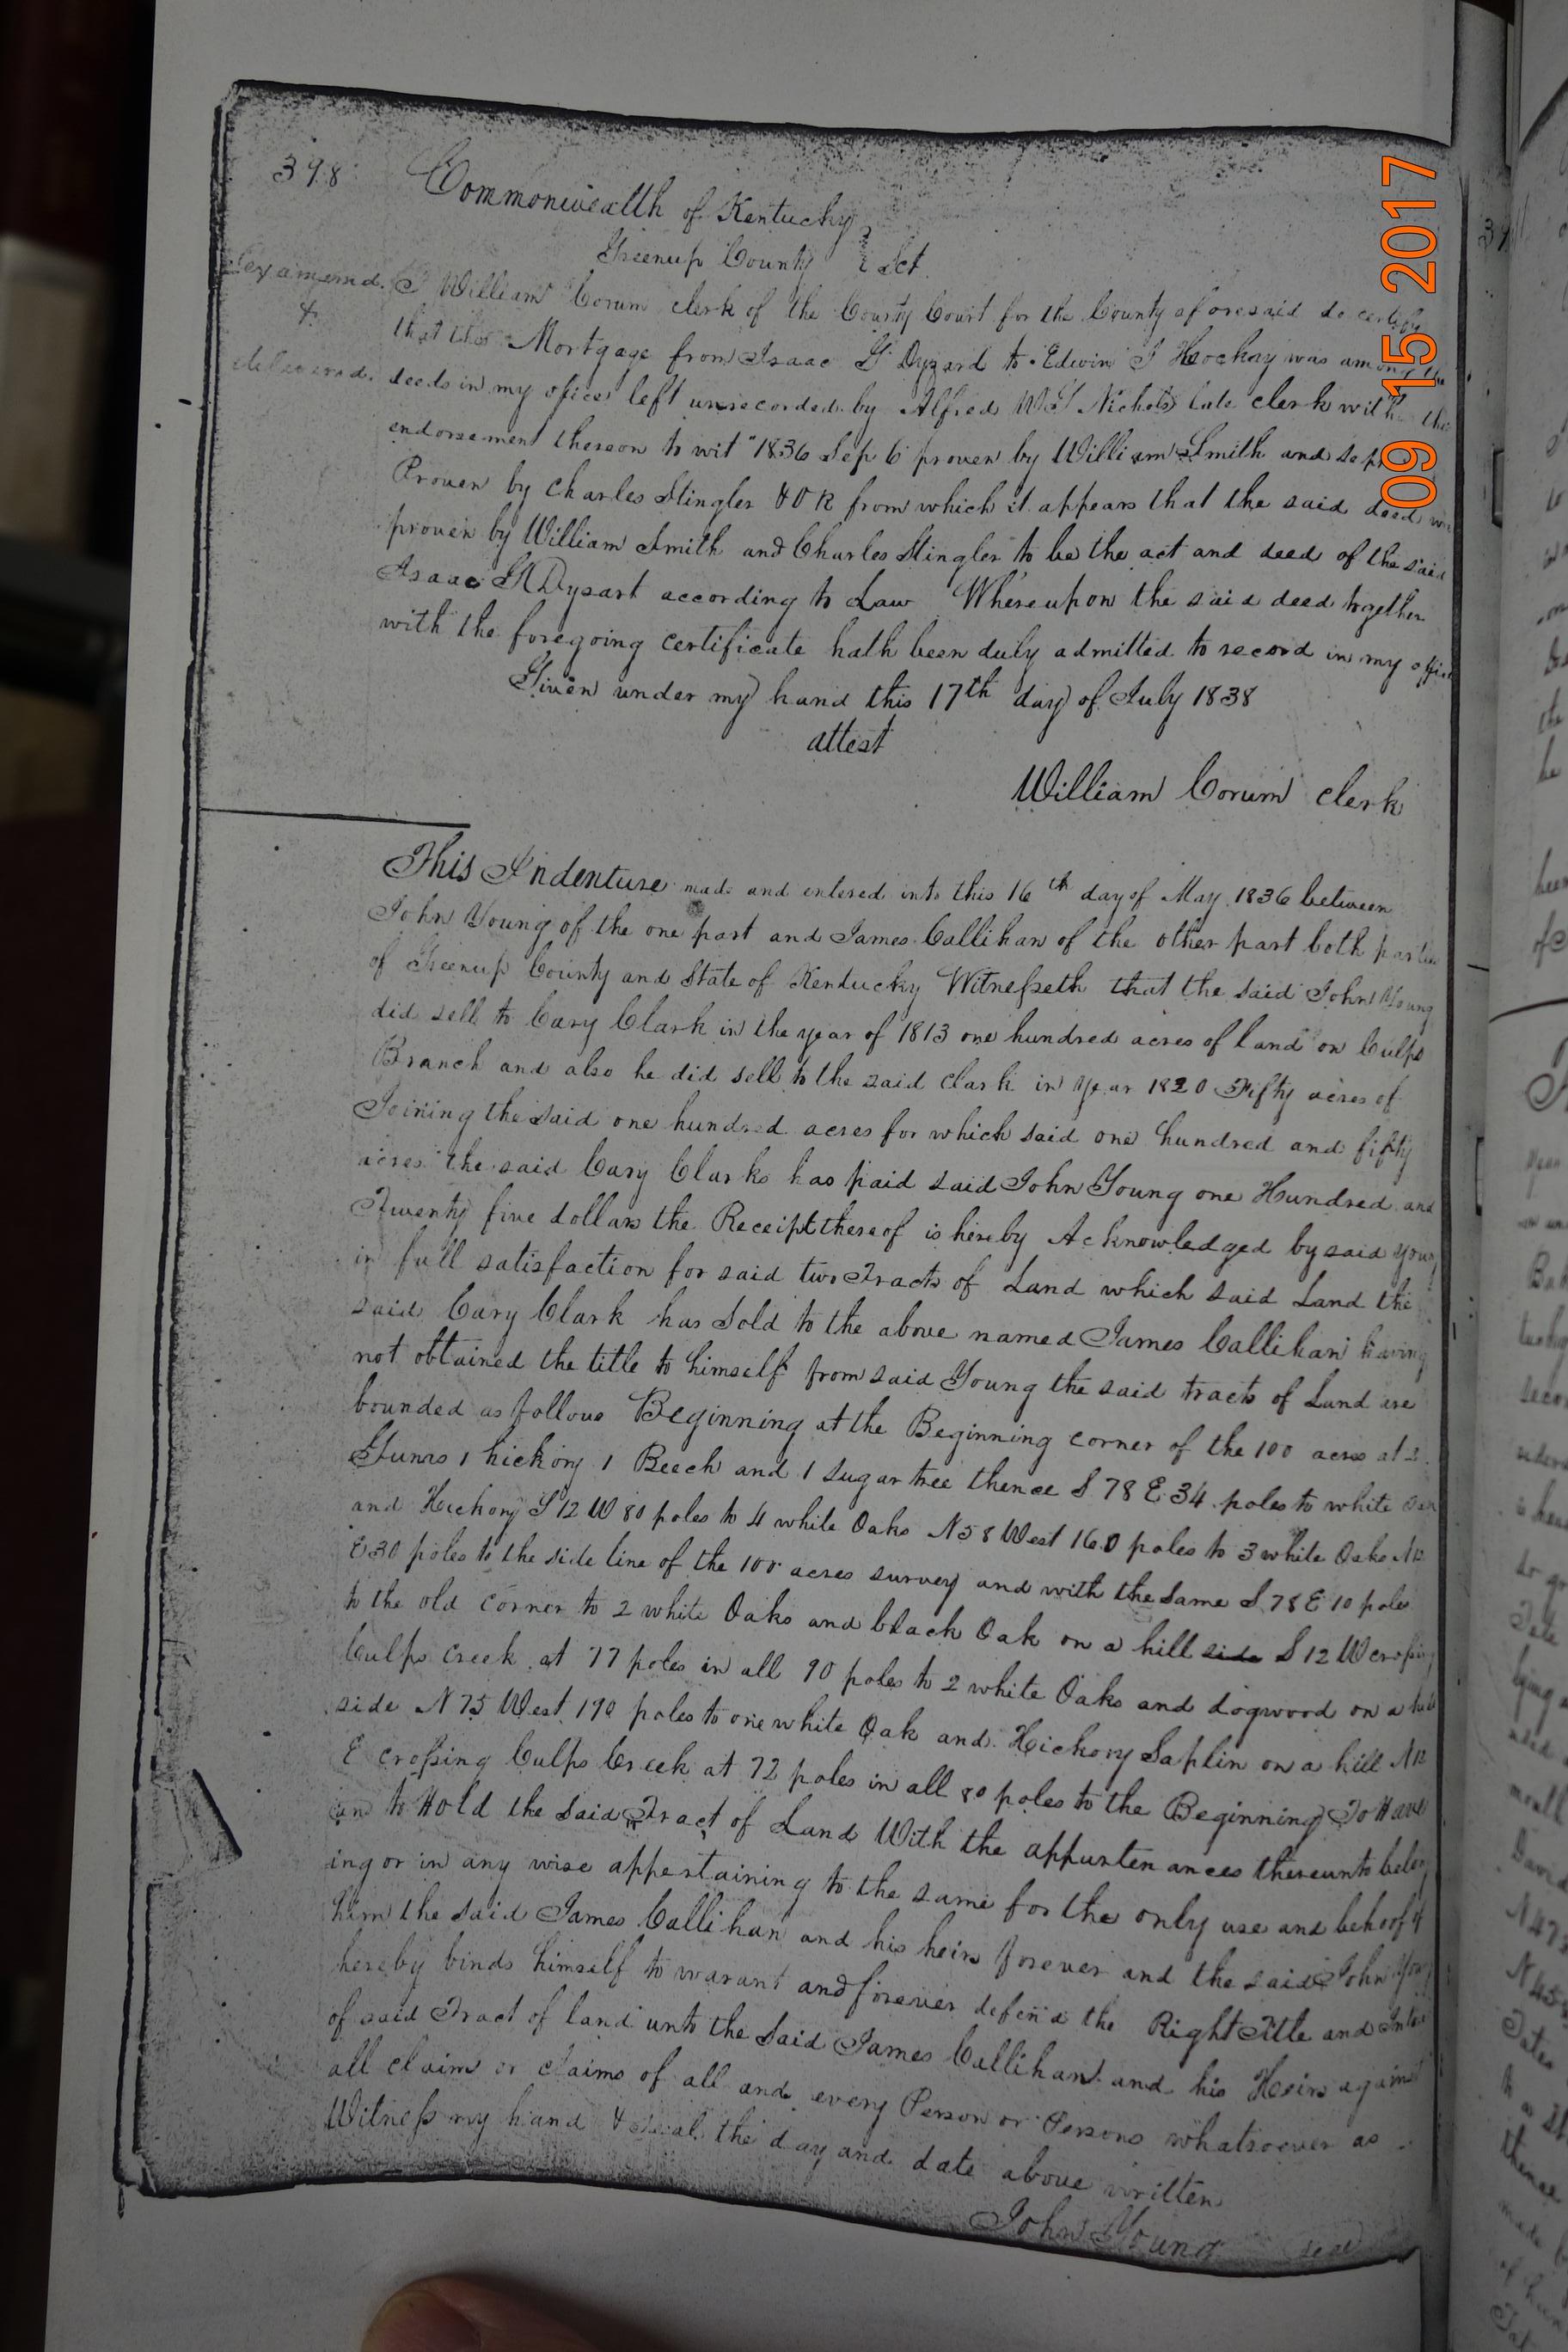 398
Commonwealth of Kentucky
Greenup County Sct
examined
&
delivered
I William Corum clerk of the County Court for the County aforesaid do certify
that this Mortgage from Isaac G Dyzard to Edwin J Hockay was among the
deeds in my office left unrecorded by Alfred W G Nichols late clerk with the
endorsement thereon to wit "1836 Sep 6 proven by William Smith and
Proven by Charles Stingler & O R from which it appears that the said deed
proven by William Smith and Charles Stingler to be the act and deed of the said
Isaac G Dysart according to Law Whereupon the said deed together
with the foregoing certificate hath been duly admitted to record in my office
Given under my hand this 17th day of July 1838
attest
William Corum clerk
This Indenture made and entered into this 16th day of May 1836 between
John Young of the one part and James Callihan of the other part both parties
of Greenup County and State of Kentucky Witnesseth that the said John Young
did sell to Cary Clark in the year of 1813 one hundred acres of land on Culps
Branch and also he did sell to the said Clark in year 1820 Fifty acres of
Joining the said one hundred acres for which said one hundred and fifty
acres the said Cary Clarke has paid said John Young one Hundred and
Twenty five dollars the Receipt thereof is hereby Acknowledged by said Young
in full satisfaction for said two Tracts of Land which said Land the
said Cary Clark has Sold to the above named James Callihan having
not obtained the title to himself from said Young the said tracts of Land are
bounded as follows Beginning at the Beginning corner of the 100 acres at 2
Gums 1 hickory 1 Beech and 1 Sugar tree thence S 78 E 34 poles to white oak
and Hickory S 12 W 80 poles to 4 white Oaks N 58 West 160 poles to 3 white Oaks N 12
E 30 poles to the side line of the 100 acres survey and with the same S 78 E 10 poles
to the old corner to 2 white Oaks and black Oak on a hill side S 12 W crossing
Culps Creek at 77 poles in all 90 poles to 2 white Oaks and dogwood on a hill
side N 75 West 190 poles to one white Oak and Hickory Saplin on a hill N 12
E crossing Culps Creek at 72 poles in all 80 poles to the Beginning To Have
and to Hold the Said Tract of Land With the appurtenances thereunto belong
ing or in any wise appertaining to the same for the only use and behoof of
him the said James Callihan and his heirs forever and the said John Young
hereby binds himself to warant and forever defend the Right Title and Inter
of said Tract of land unto the Said James Callihan and his Heirs against
all claim or claims of all and every Person or Persons whatsoever as
Witness my hand & seal the day and date above written
John Young seal
09 15 2017